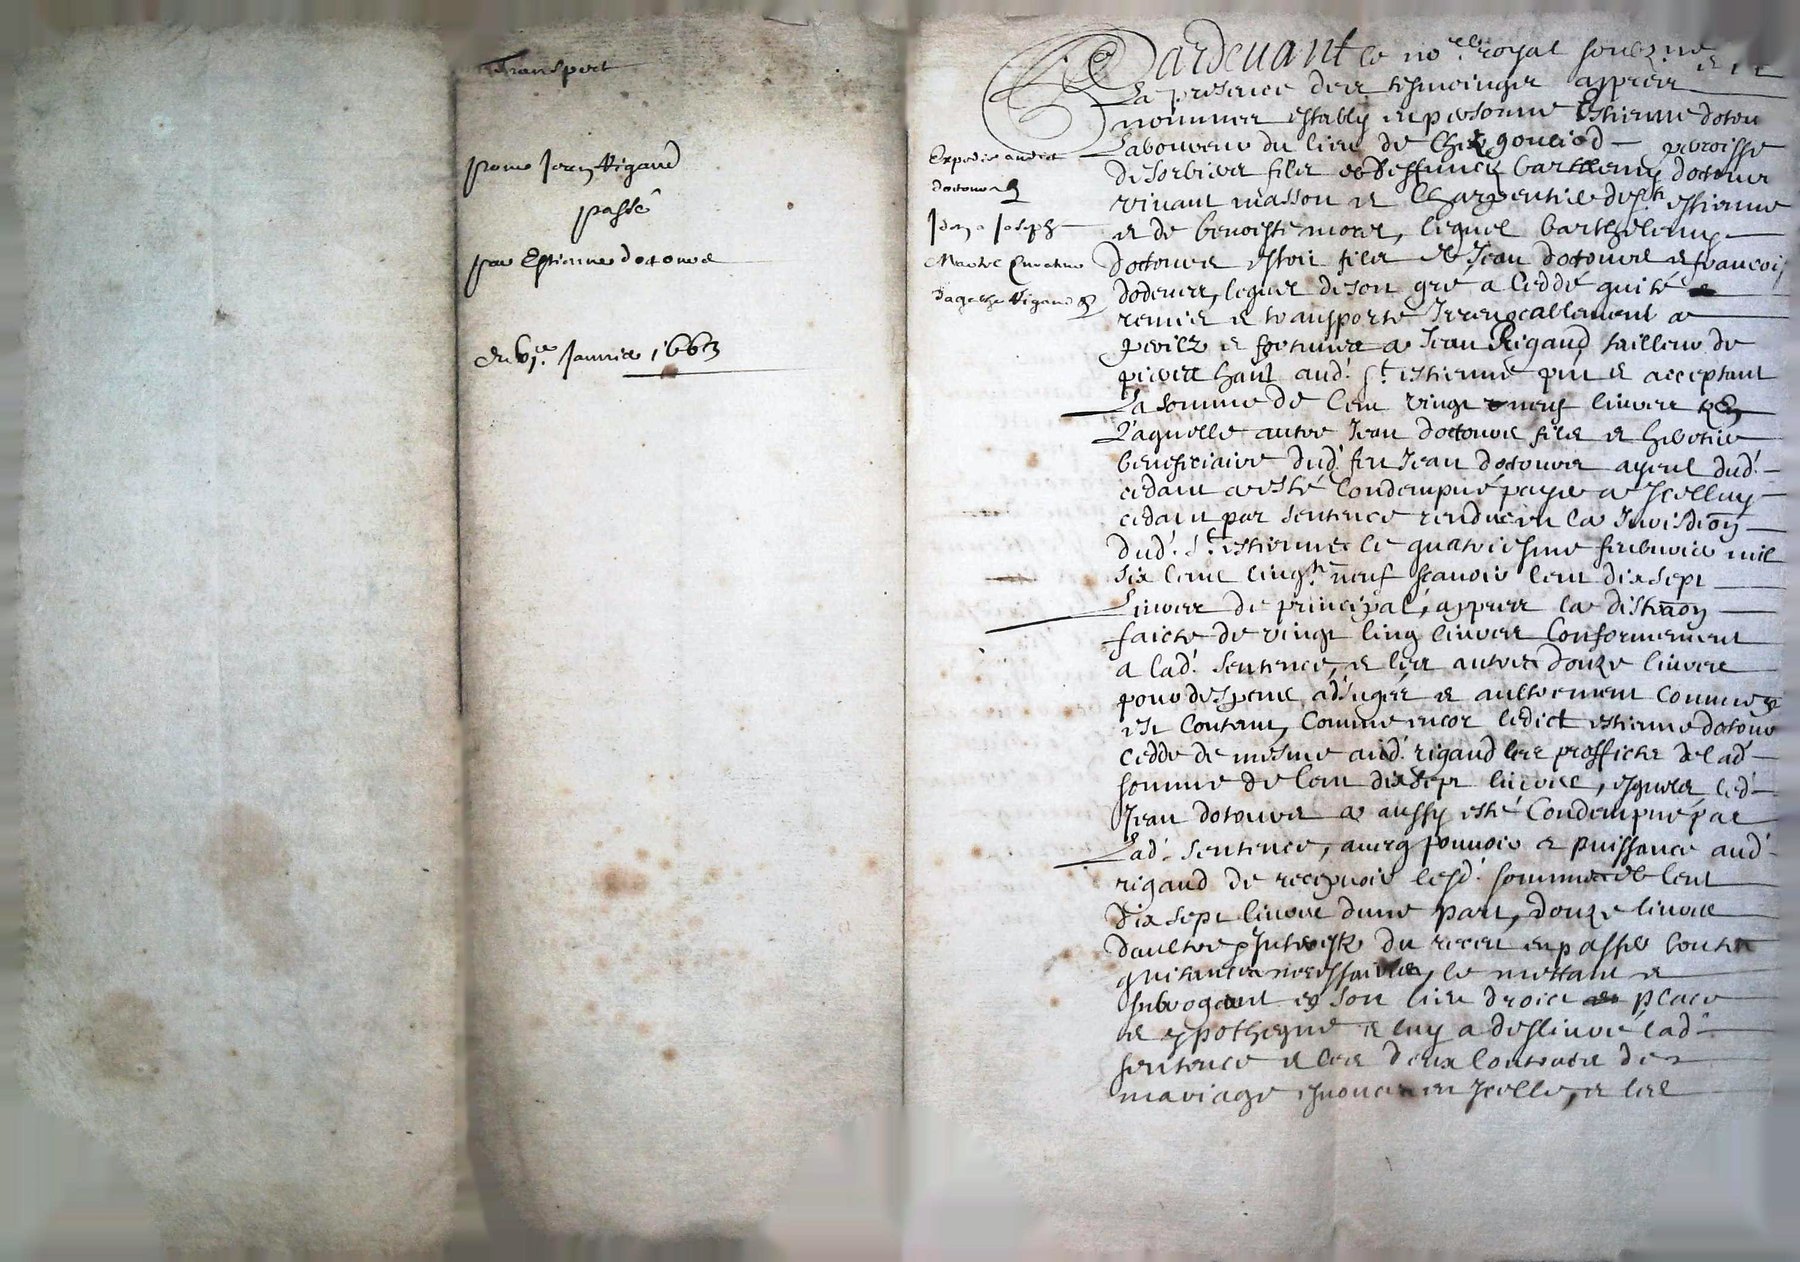 Transport
pour Jean Rigaud
passé
par Estienne dotouvre
du 6e. Janvier 1663
Expedié audict
dotouvre
Jean Joseph
Rigaud
Pardevant le no.re royal soubzsigné et
La presence des tesmoingz appres
nommes estably en personne Estienne dotou
Laboureur du lieu de paroisse
de sorbiers filz de deffunct barthelemy dotouvre
vivant masson et Charpentier de St. estienne
et de benoiste morel, lequel barthelemy
dotouvre estoit filz de Jean dotouvre et francois
lequel de son gré a ceddé quité
remis et transporté Irrevocablement a
perilz et fortunes a Jean Rigaud tailleur de
pierre hant aud. St. estienne pnt et acceptant
La somme de Cent vingt neuf livres En
Laquelle autre Jean dotouvre filz et heritier
beneficiaire dud. feu Jean dotouvre ayeul dud.
cedant a esté Condempné payer a Icelluy
cedant par sentence rendue en la Jurisdion
dud. St. estienne le quatriesme febvrier mil
six Cent Cinqte neuf scavoir Cent dix sept
Livres de principal, appres la distraon
faicte de vingt Cinq livres Conformement
a lad. sentence, et les autres douze livres
pour despens adjugés et aultrement comme
est Contenu, Comme encor ledict estienne dotouv
cedde de mesme aud. rigaud les proffictz de lad
somme de Cent dix sept livres, esquelz led.
Jean dotouvre a aussy esté Condempné par
Lad. sentence, avecq pouvoir et puissance aud.
rigaud de recepvoir lesd. sommes de Cent
dix sept livres dune part, douze livres
daultre et Interestz du receu en passer toutes
quitances necessaires, le mettant et
subrogeant en son lieu droict place
et ypotheque et luy a deslivré lad.
sentence et les deux Contractz de
mariage enoncés en Icelle, et les